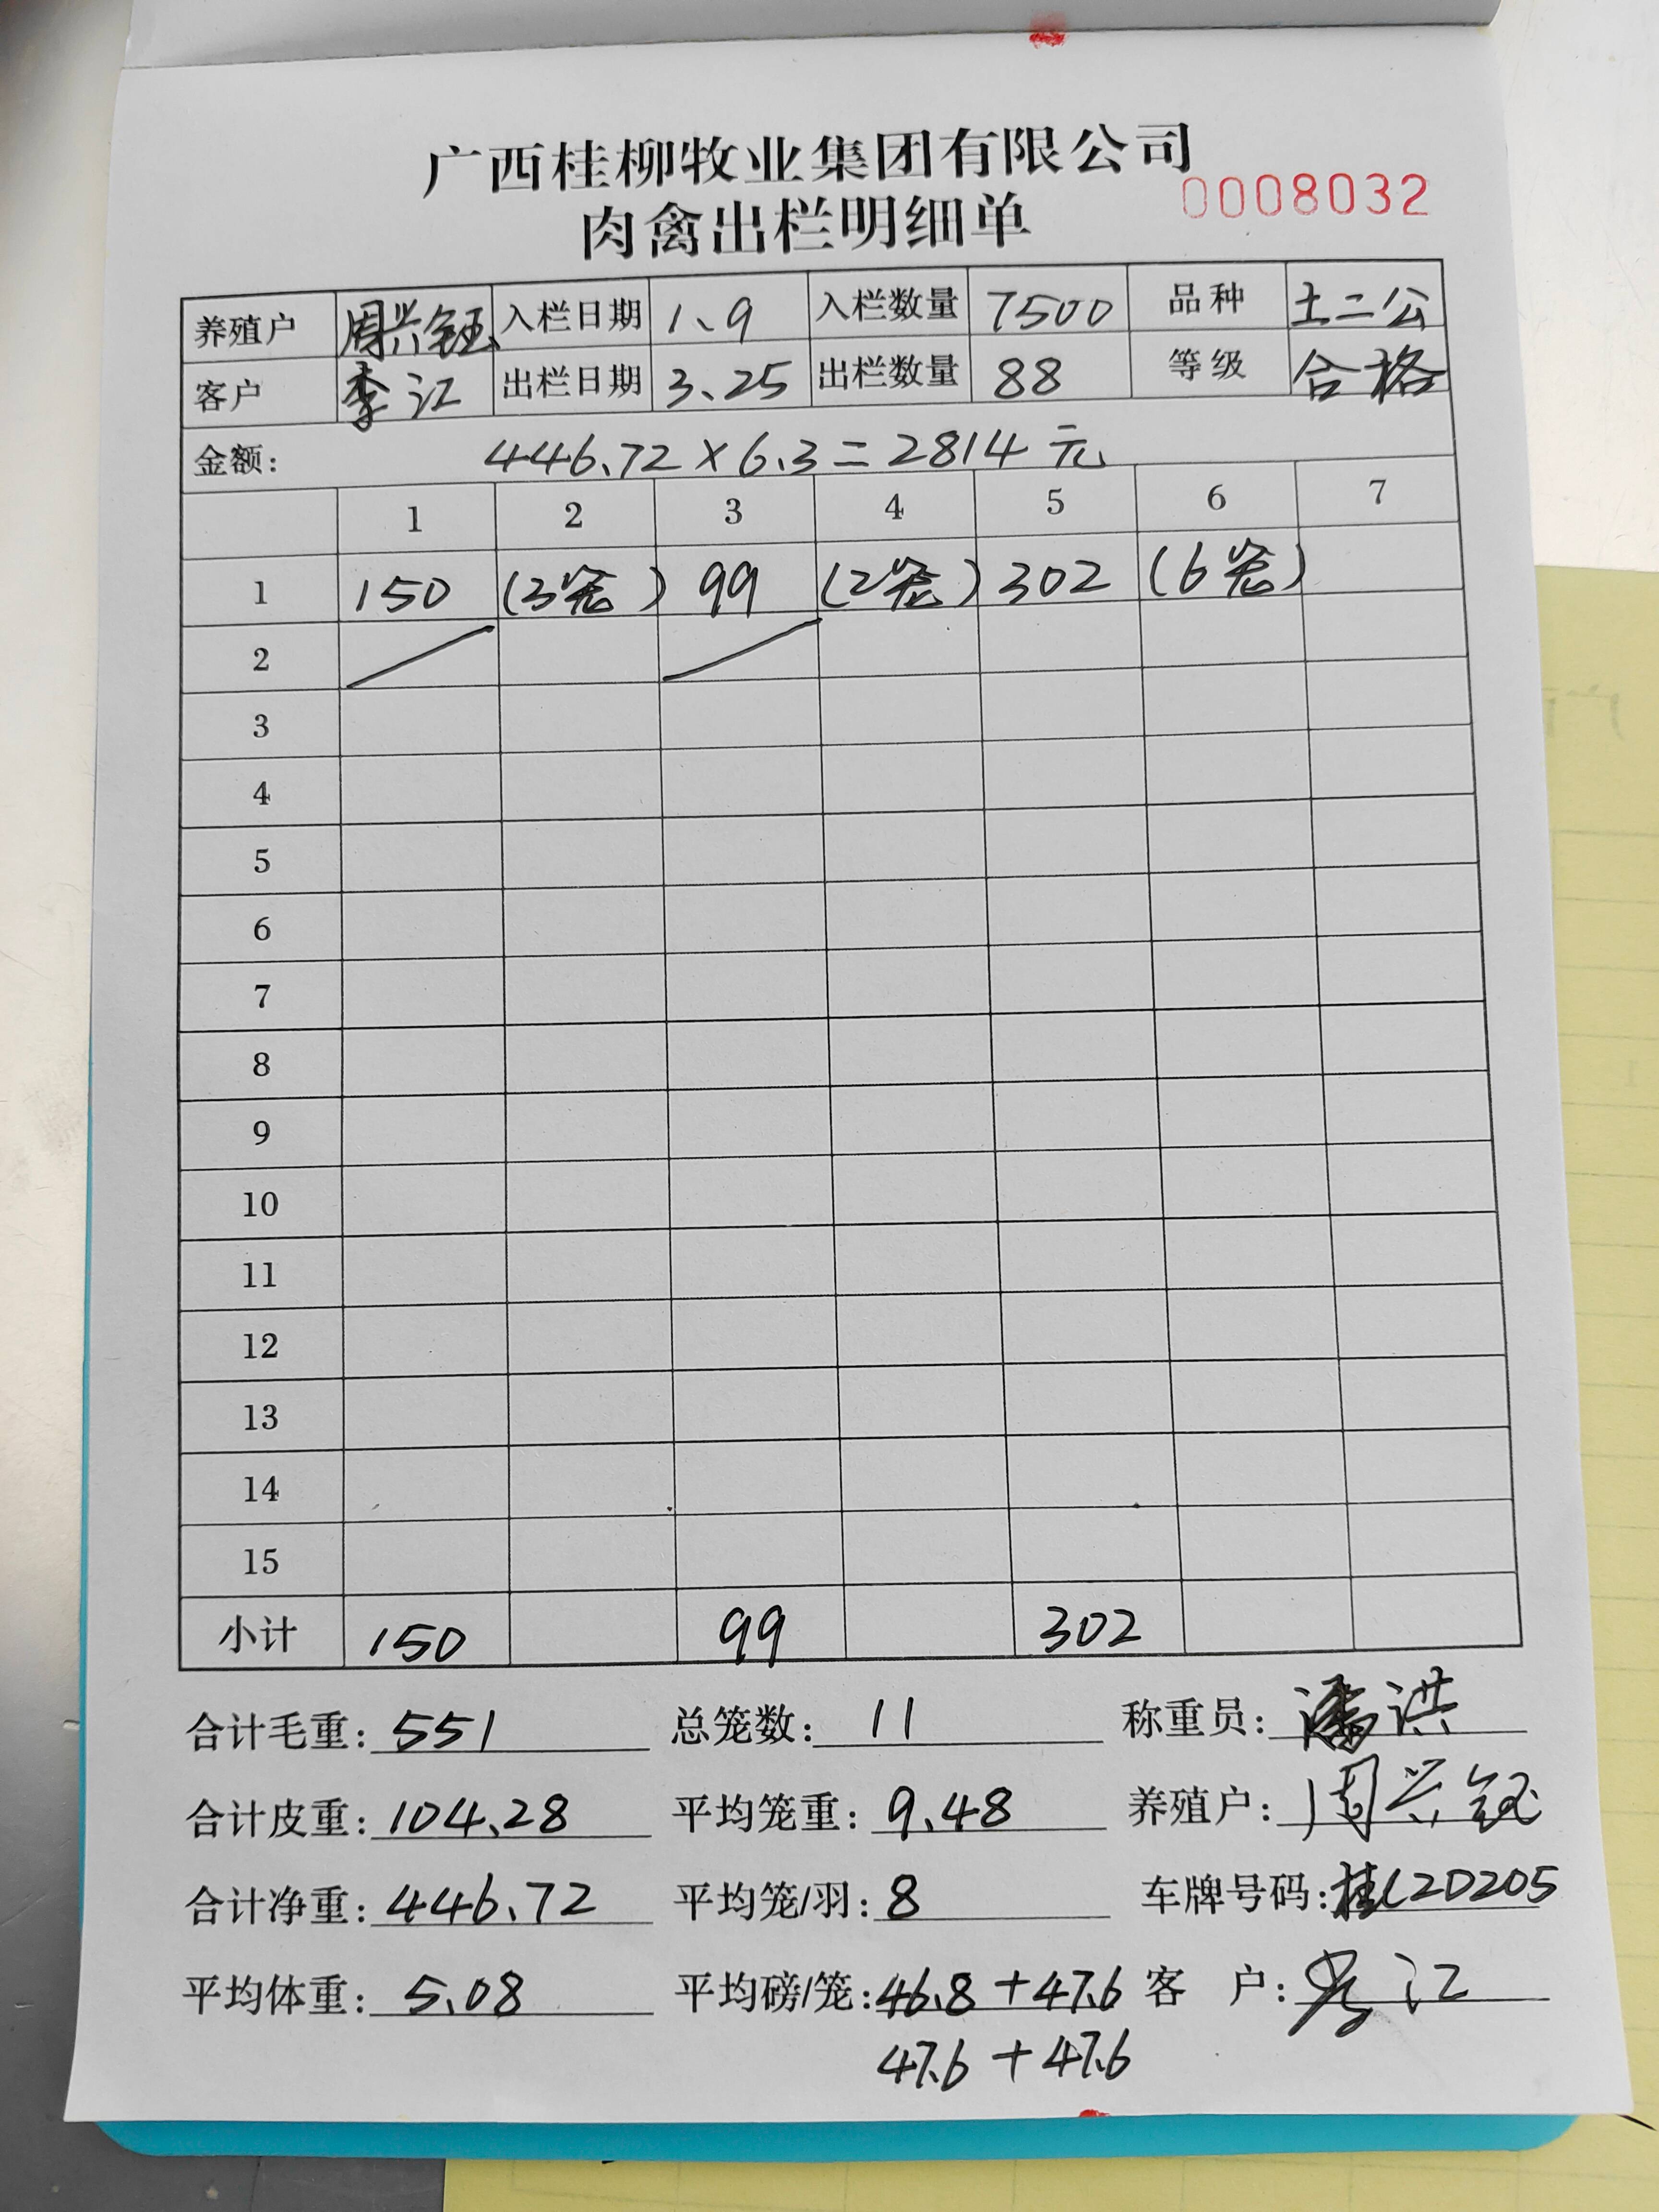 广西桂柳牧业集团有限公司
肉禽出栏明细单 0008032
养殖户 周兴钰 入栏日期 1、9 入栏数量 7500 品种 土二公
客户 李江 出栏日期 3、25 出栏数量 88 等级 合格
金额: 446.72×6.3=2814元
1 2 3 4 5 6 7
1 150 (3笼) 99 (2笼) 302 (6笼)
2
3
4
5
6
7
8
9
10
11
12
13
14
15
小计 150 99 302
合计毛重: 551 总笼数: 11 称重员: 潘洪
合计皮重: 104.28 平均笼重: 9.48 养殖户: 周兴钰
合计净重: 446.72 平均笼/羽: 8 车牌号码: 桂C20205
平均体重: 5.08 平均磅/笼: 46.8+47.6 客户: 李江
47.6+47.6